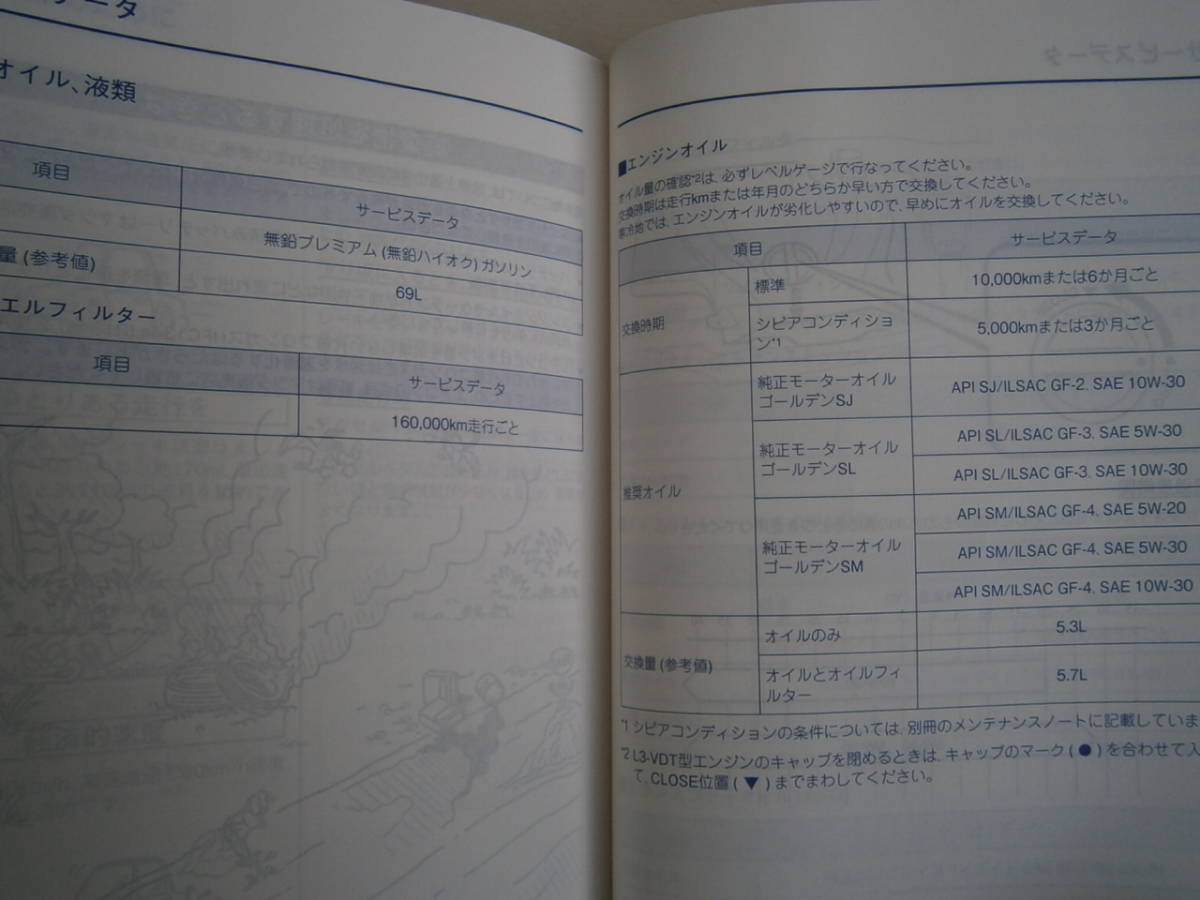 データ
オイル、液類
項目
サービスデータ
無鉛プレミアム (無鉛ハイオク) ガソリン
量 (参考値)
69L
エルフィルター
項目
サービスデータ
160,000km走行ごと
■エンジンオイル
オイル量の確認*2は、必ずレベルゲージで行なってください。
交換時期は走行kmまたは年月のどちらか早い方で交換してください。
寒冷地では、エンジンオイルが劣化しやすいので、早めにオイルを交換してください。
項目
サービスデータ
交換時期
標準
10,000kmまたは6か月ごと
シビアコンディショ
ン*1
5,000kmまたは3か月ごと
推奨オイル
純正モーターオイル
ゴールデンSJ
API SJ/ILSAC GF-2, SAE 10W-30
純正モーターオイル
ゴールデンSL
API SL/ILSAC GF-3, SAE 5W-30
API SL/ILSAC GF-3, SAE 10W-30
純正モーターオイル
ゴールデンSM
API SM/ILSAC GF-4, SAE 5W-20
API SM/ILSAC GF-4, SAE 5W-30
API SM/ILSAC GF-4, SAE 10W-30
交換量 (参考値)
オイルのみ
5.3L
オイルとオイルフィ
ルター
5.7L
*1 シビアコンディションの条件については、別冊のメンテナンスノートに記載していま
*2 L3-VDT型エンジンのキャップを閉めるときは、キャップのマーク ( ● ) を合わせて入
て、CLOSE位置 ( ▼ ) までまわしてください。